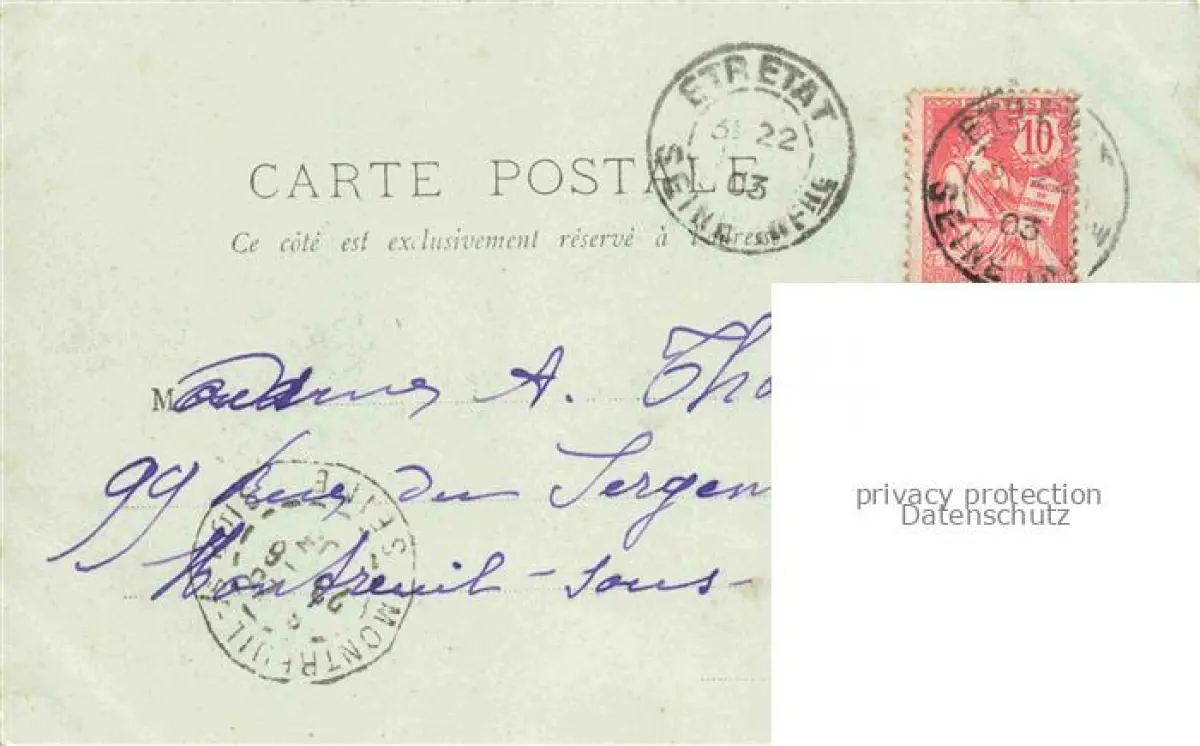 ETRETAT
22
03
SEINE INFRE
10
ET
03
SEINE
CARTE POSTALE
Ce côté est exclusivement réservé à l'adresse
M
Madame A. Tho
99 Rue du Sergen
Montreuil-sous-
SEINE
MONTREUIL-
24
privacy protection
Datenschutz